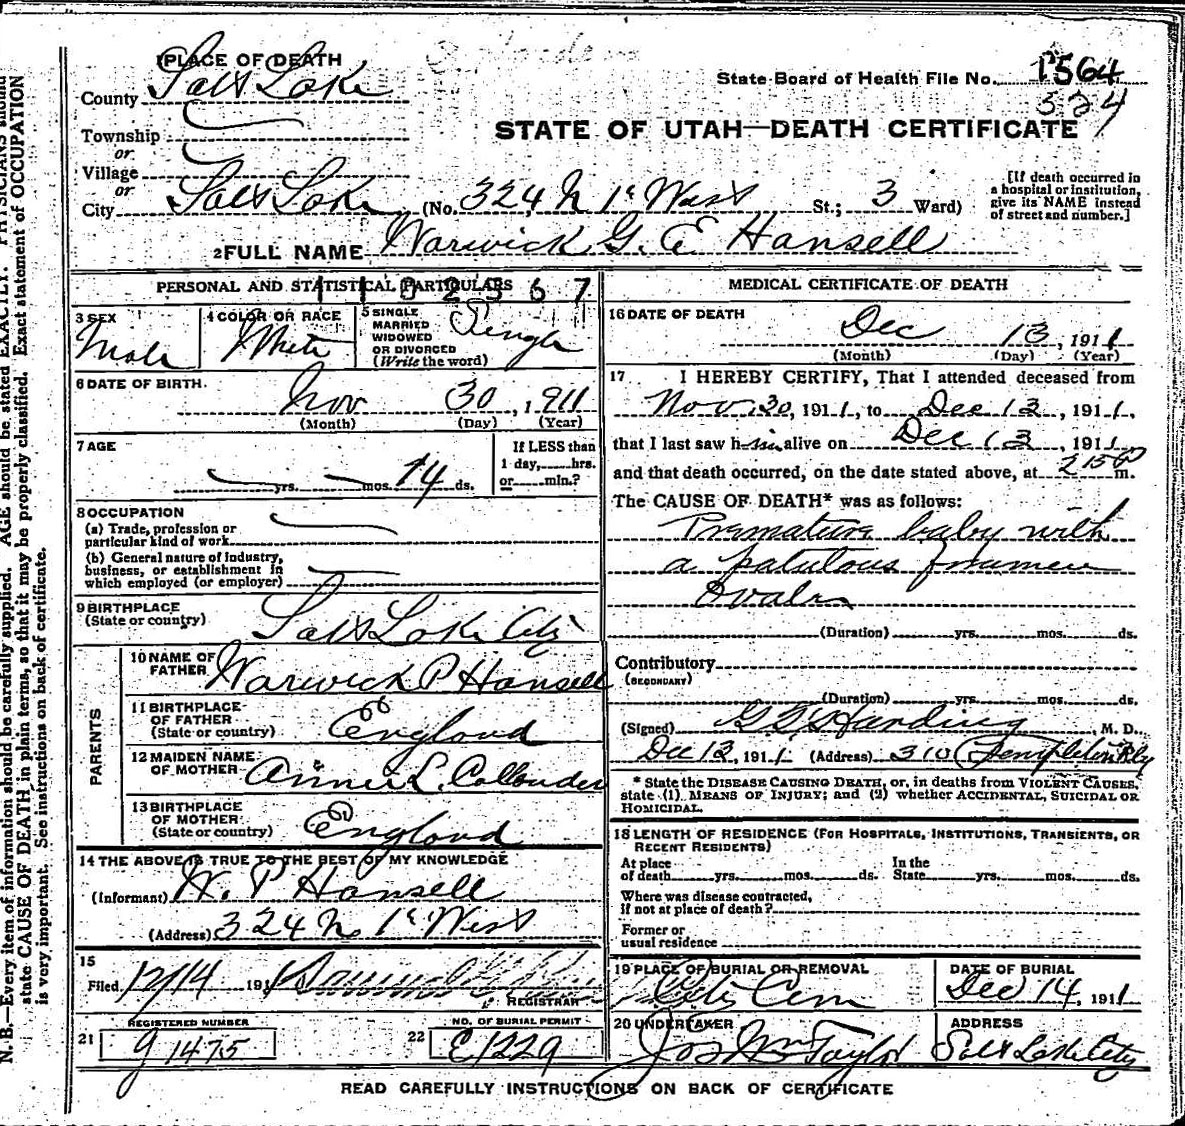 1 PLACE OF DEATH
State Board of Health File No. 1564
324
County Salt Lake
STATE OF UTAH—DEATH CERTIFICATE
Township
or
Village
or
City Salt Lake (No. 324 N 1st West St.; 3 Ward)
[If death occurred in
a hospital or institution,
give its NAME instead
of street and number.]
2 FULL NAME Warwick G. E Hansell
PERSONAL AND STATISTICAL PARTICULARS
3 SEX
Male
4 COLOR OR RACE
White
5 SINGLE
MARRIED
WIDOWED
OR DIVORCED
(Write the word)
Single
6 DATE OF BIRTH.
Nov 30, 1911
(Month) (Day) (Year)
7 AGE
yrs. mos. 14 ds.
If LESS than
1 day, hrs.
or min.?
8 OCCUPATION
(a) Trade, profession or
particular kind of work
(b) General nature of industry,
business, or establishment in
which employed (or employer)
9 BIRTHPLACE
(State or country)
Salt Lake City
PARENTS
10 NAME OF
FATHER
Warwick P Hansell
11 BIRTHPLACE
OF FATHER
(State or country)
England
12 MAIDEN NAME
OF MOTHER
Annie L. Callender
13 BIRTHPLACE
OF MOTHER
(State or country)
England
14 THE ABOVE IS TRUE TO THE BEST OF MY KNOWLEDGE
(Informant) W. P Hansell
(Address) 324 No 1st West
15
Filed 12/14 191
REGISTRAR
21 REGISTERED NUMBER
G 1475
22 NO. OF BURIAL PERMIT
E1229
MEDICAL CERTIFICATE OF DEATH
16 DATE OF DEATH
Dec 13, 1911
(Month) (Day) (Year)
17 I HEREBY CERTIFY, That I attended deceased from
Nov. 30, 1911, to Dec 13, 1911,
that I last saw him alive on Dec 13, 1911
and that death occurred, on the date stated above, at m.
The CAUSE OF DEATH* was as follows:
Premature baby with
a patulous foramen
Ovale
(Duration) yrs. mos. ds.
Contributory
(SECONDARY)
(Duration) yrs. mos. ds.
(Signed) Harding, M. D.
Dec 13, 1911 (Address) 310 Templeton Bldg
* State the DISEASE CAUSING DEATH, or, in deaths from VIOLENT CAUSES,
state (1) MEANS OF INJURY; and (2) whether ACCIDENTAL, SUICIDAL OR
HOMICIDAL.
18 LENGTH OF RESIDENCE (FOR HOSPITALS, INSTITUTIONS, TRANSIENTS, OR
RECENT RESIDENTS)
At place
of death yrs. mos. ds.
In the
State yrs. mos. ds.
Where was disease contracted,
if not at place of death?
Former or
usual residence
19 PLACE OF BURIAL OR REMOVAL
City Cem
DATE OF BURIAL
Dec 14, 1911
20 UNDERTAKER
Jos Wm Taylor
ADDRESS
Salt Lake City
READ CAREFULLY INSTRUCTIONS ON BACK OF CERTIFICATE
N. B.—Every item of information should be carefully supplied. AGE should be stated EXACTLY. PHYSICIANS should
state CAUSE OF DEATH in plain terms, so that it may be properly classified. Exact statement of OCCUPATION
is very important. See instructions on back of certificate.